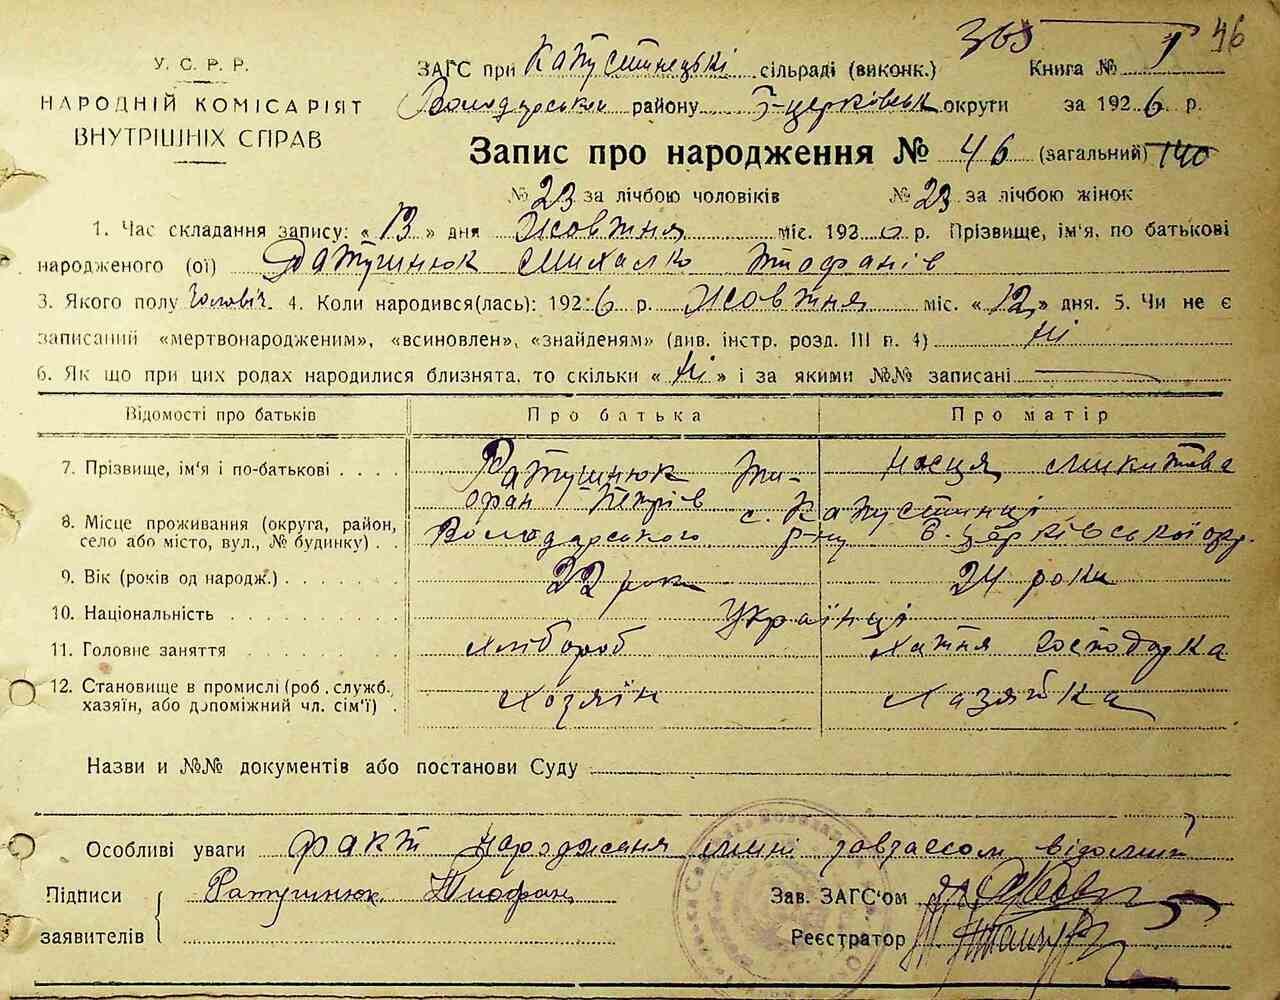 365 46
У. С. Р. Р.
НАРОДНІЙ КОМІСАРІЯТ
ВНУТРІШНІХ СПРАВ
ЗАГС при Капустинецькі сільраді (виконк.) Книга № 1
Володарськом району Б-церковськ округи за 1926 р.
Запис про народження № 46 (загальний) 140
№ 23 за лічбою чоловіків № 23 за лічбою жінок
1. Час складання запису: « 13 » дня Жовтня міс. 192 р. Прізвище, ім'я, по батькові
народженого (ої) Ратушнюк Михалко Тиофанів
3. Якого полу Чоловіч. 4. Коли народився(лась): 1926 р. Жовтня міс. « 12 » дня. 5. Чи не є
записаний «мертвонародженим», «всиновлен», «знайденям» (див. інстр. розд. III п. 4) Ні
6. Як що при цих родах народилися близнята, то скільки « Ні » і за якими №№ записані
Відомості про батьків Про батька Про матір
7. Прізвище, ім'я і по-батькові Ратушнюк Ти- Настя Микитова
офан Петрів
8. Місце проживання (округа, район, с. Капустинці
село або місто, вул., № будинку) Володарського р-ну Б. Церківської окр.
9. Вік (років од народж.) 22 роки 24 роки
10. Національність Українці
11. Головне заняття Хлібороб Хатня господарка
12. Становище в промислі (роб. служб. Хозяїн Хазяйка
хазяїн, або допоміжний чл. сім'ї)
Назви и №№ документів або постанови Суду
Особливі уваги Факт народжаня мині завзагсом відомий
Підписи Ратушнюк Тиофан Зав. ЗАГС'ом
заявителів Реєстратор